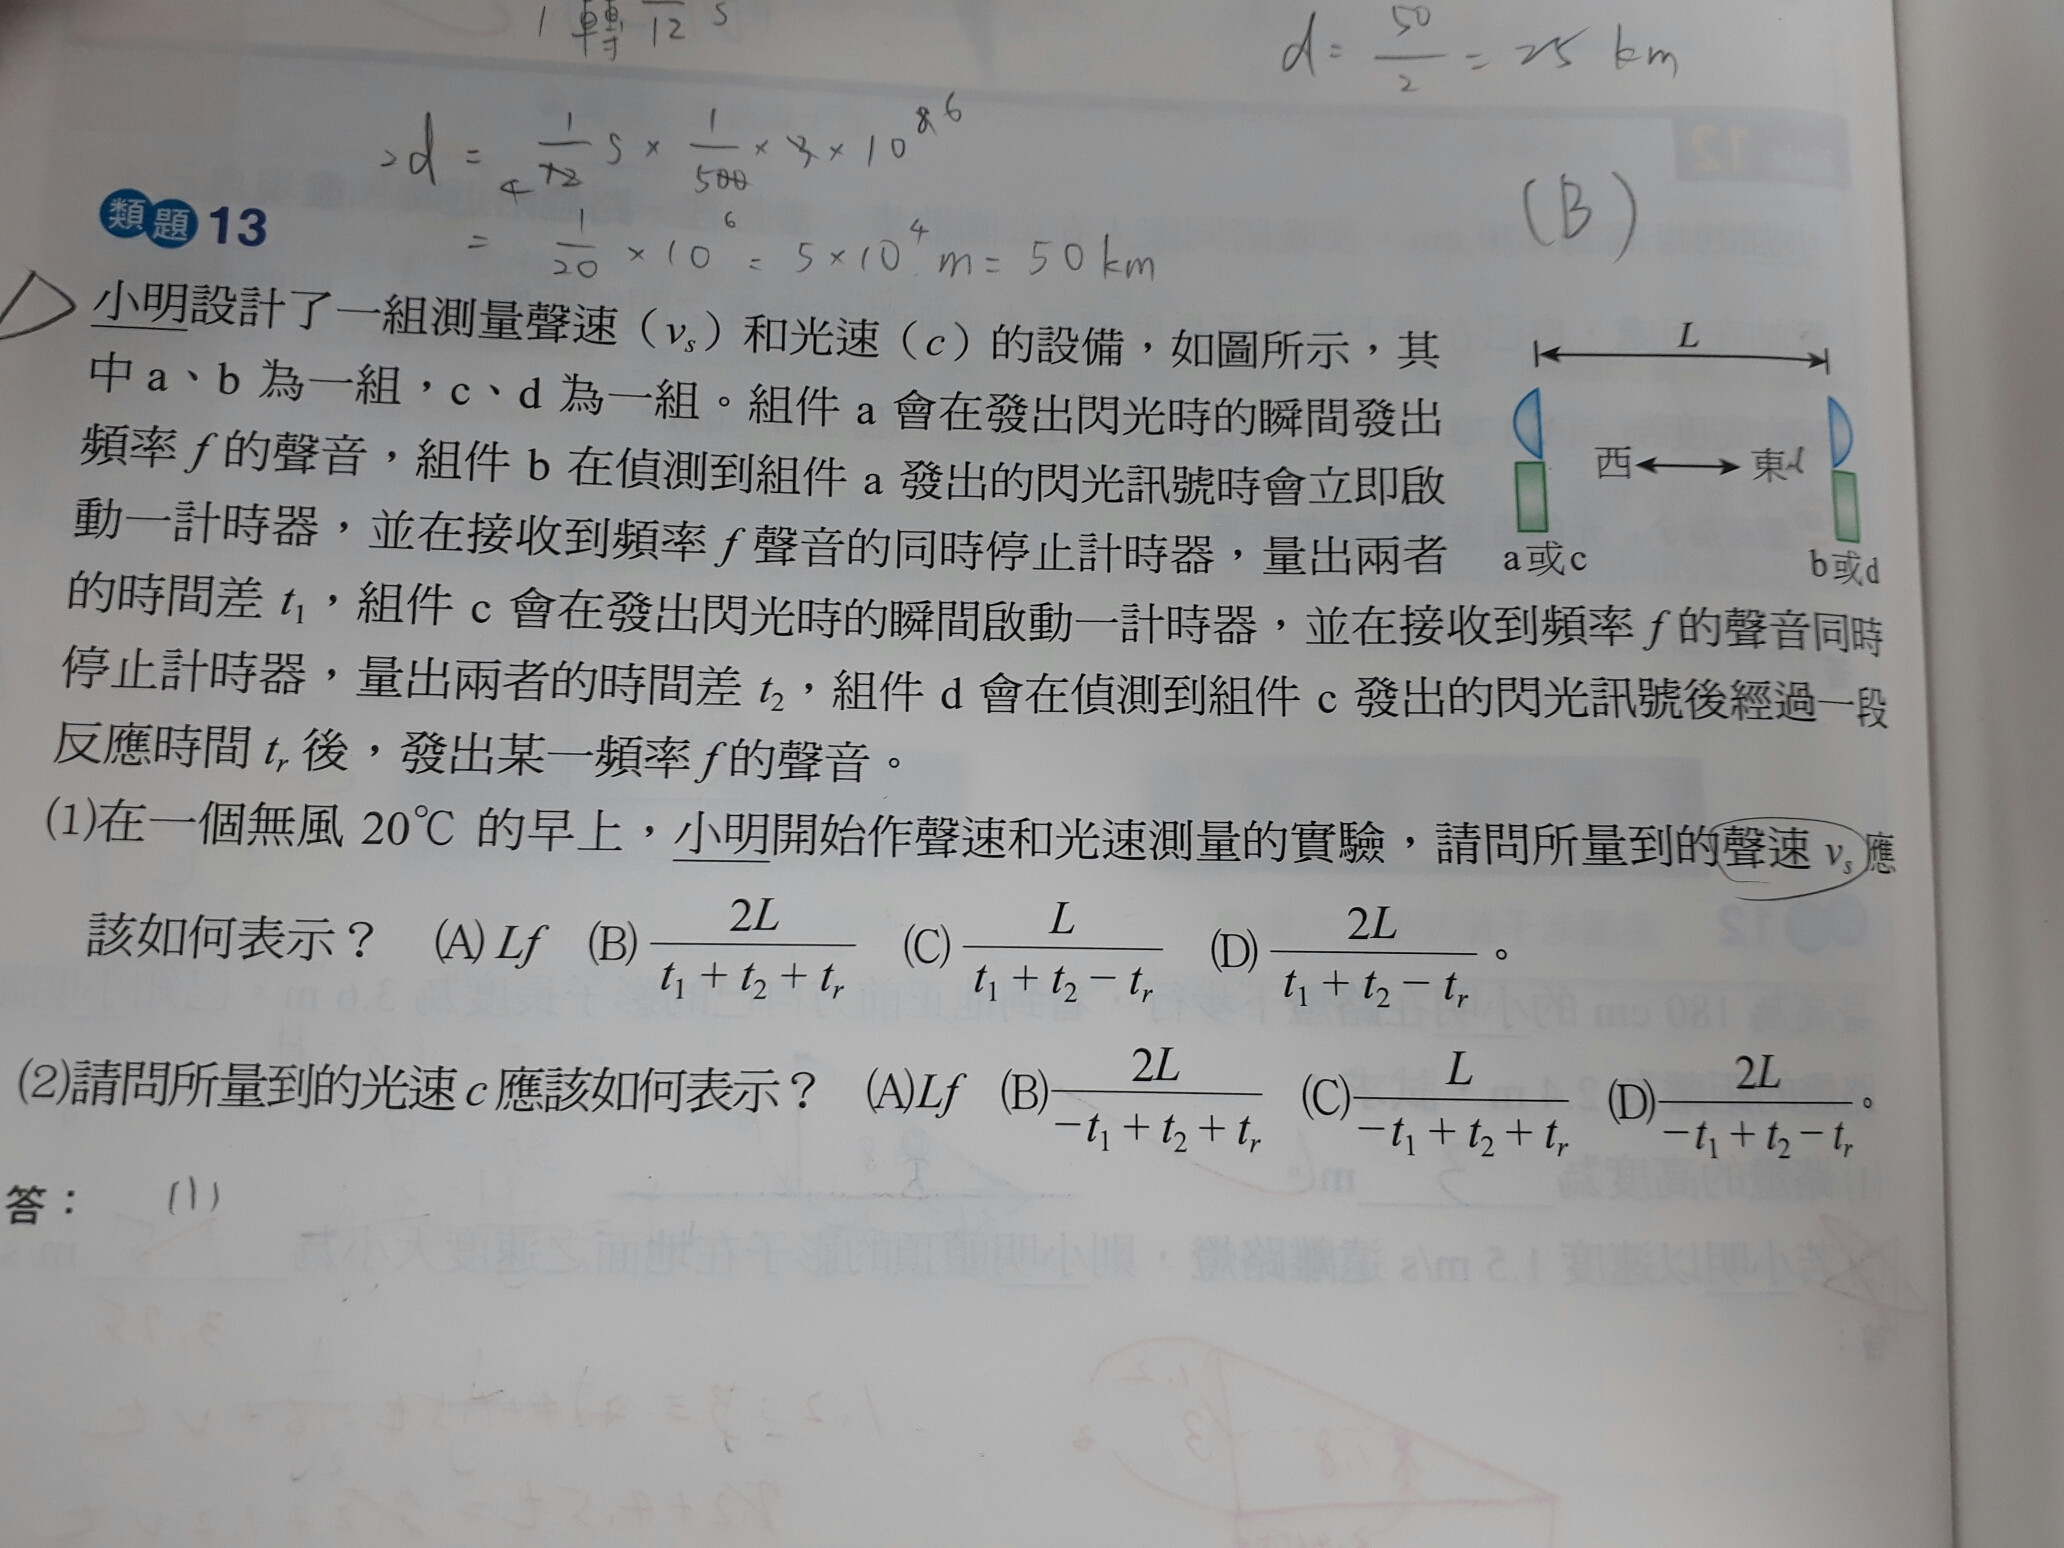 1轉 1/12 s
d = 50/2 = 25 km
2d = 1/12 s × 1/500 × 3 × 10^8 6
4
= 1/20 × 10^6 = 5×10^4 m = 50 km
(B)
類題 13
小明設計了一組測量聲速（vs）和光速（c）的設備，如圖所示，其
中 a、b 為一組，c、d 為一組。組件 a 會在發出閃光時的瞬間發出
頻率 f 的聲音，組件 b 在偵測到組件 a 發出的閃光訊號時會立即啟
動一計時器，並在接收到頻率 f 聲音的同時停止計時器，量出兩者
的時間差 t1，組件 c 會在發出閃光時的瞬間啟動一計時器，並在接收到頻率 f 的聲音同時
停止計時器，量出兩者的時間差 t2，組件 d 會在偵測到組件 c 發出的閃光訊號後經過一段
反應時間 tr 後，發出某一頻率 f 的聲音。
L
西 東
a或c
b或d
(1)在一個無風 20℃ 的早上，小明開始作聲速和光速測量的實驗，請問所量到的聲速 vs 應
該如何表示？ (A) Lf (B) 2L/(t1 + t2 + tr) (C) L/(t1 + t2 − tr) (D) 2L/(t1 + t2 − tr)。
(2)請問所量到的光速 c 應該如何表示？ (A) Lf (B) 2L/(−t1 + t2 + tr) (C) L/(−t1 + t2 + tr) (D) 2L/(−t1 + t2 − tr)。
答： (1)